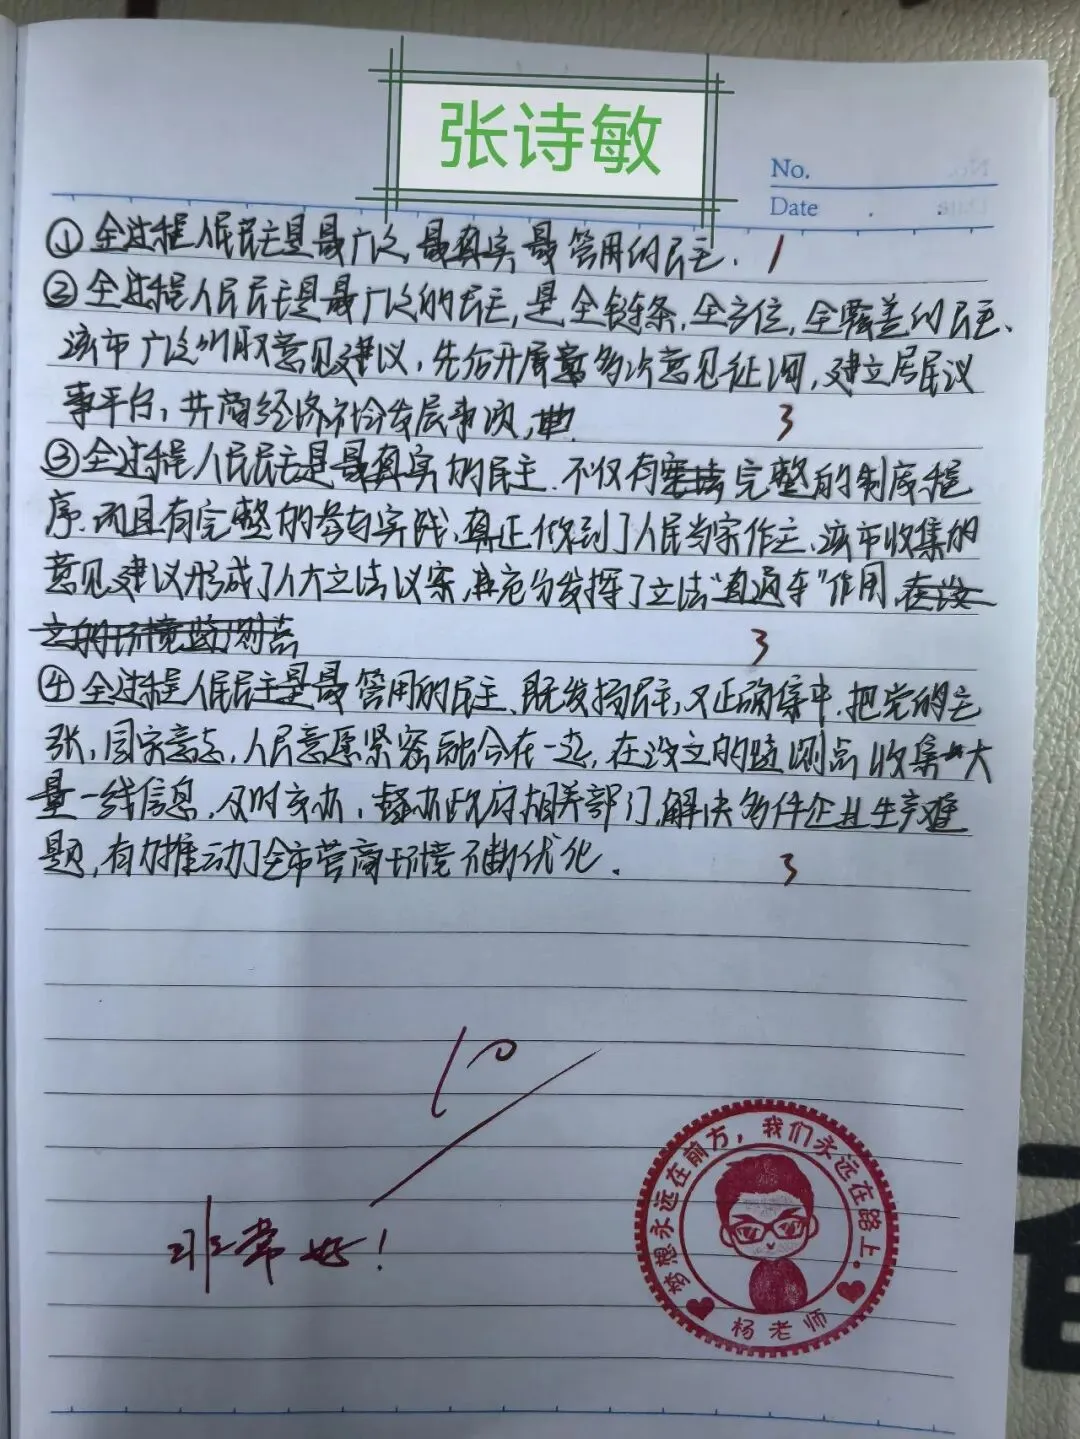 张诗敏
No.
Date
①全过程人民民主是最广泛最真实最管用的民主. 1
②全过程人民民主是最广泛的民主,是全链条,全方位,全覆盖的民主、
该市广泛听取意见建议,先后开展多次意见征询,建立居民议
事平台,共商经济社会发展事项, 3
③全过程人民民主是最真实的民主.不仅有完整的制度程
序.而且有完整的参与实践,真正做到了人民当家作主.该市收集的
意见建议形成了人大立法议案,充分发挥了立法"直通车"作用.
3
④全过程人民民主是最管用的民主、既发扬民主,又正确集中.把党的主
张,国家意志,人民意愿紧密融合在一起,在设立的监测点收集大
量一线信息.及时交办,督办政府相关部门,解决多件企业生产难
题,有力推动了全市营商环境不断优化. 3
10
非常好!
梦想永远在前方,我们永远在路上.
杨老师